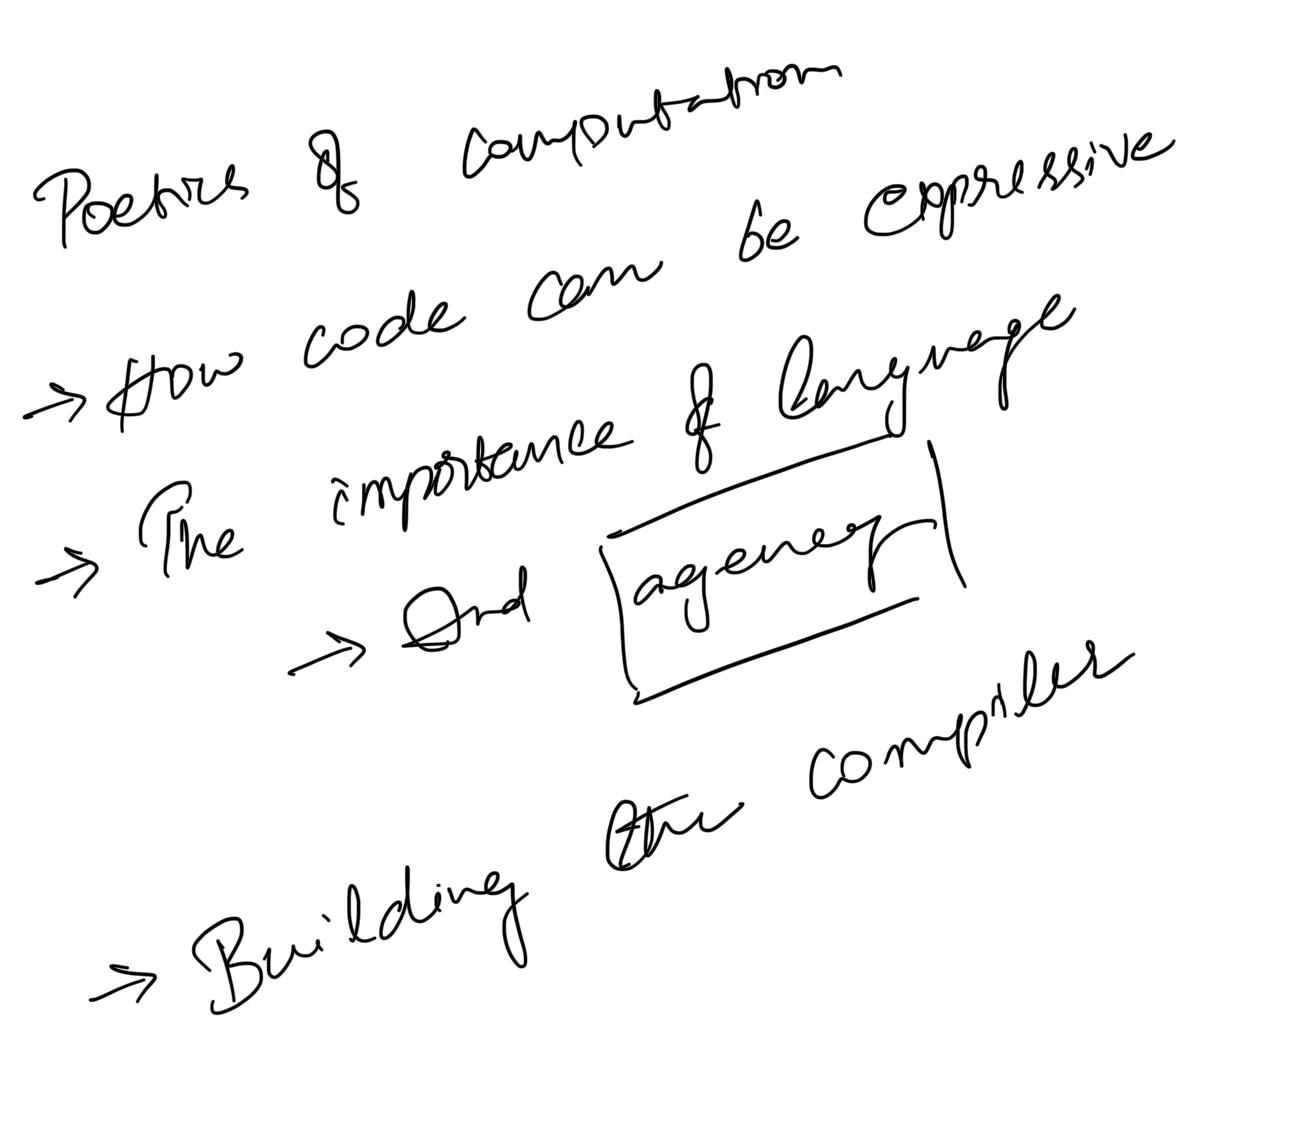 Poetics of computation
→ How code can be expressive
→ The importance of language
→ And agency
→ Building the compiler